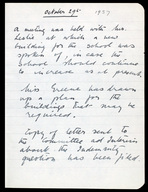 October 29th 1937
A meeting was held with Mrs.
Leslie at which a new
building for the school was
spoken of in case the
school should continue
to increase as at present.
Miss Greene has drawn
up a plan for the
buildings that may be
required.
Copy of letter sent to
the Committee and Interim
about the
question has been filed.